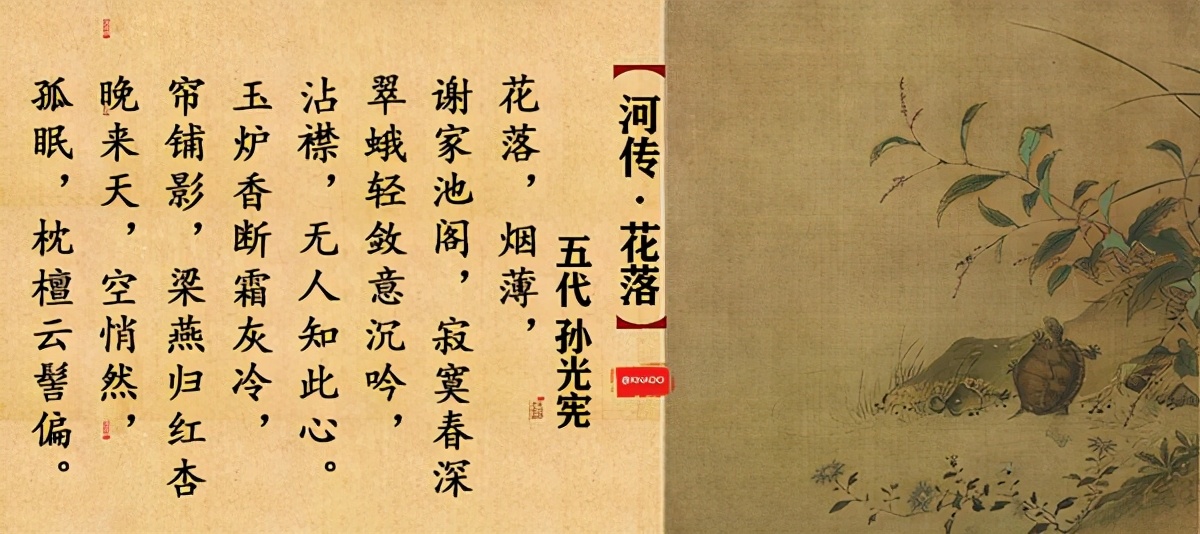 【河传·花落】
五代 孙光宪
花落，烟薄，
谢家池阁，寂寞春深
翠蛾轻敛意沉吟，
沾襟，无人知此心。
玉炉香断霜灰冷，
帘铺影，梁燕归红杏
晚来天，空悄然，
孤眠，枕檀云髻偏。